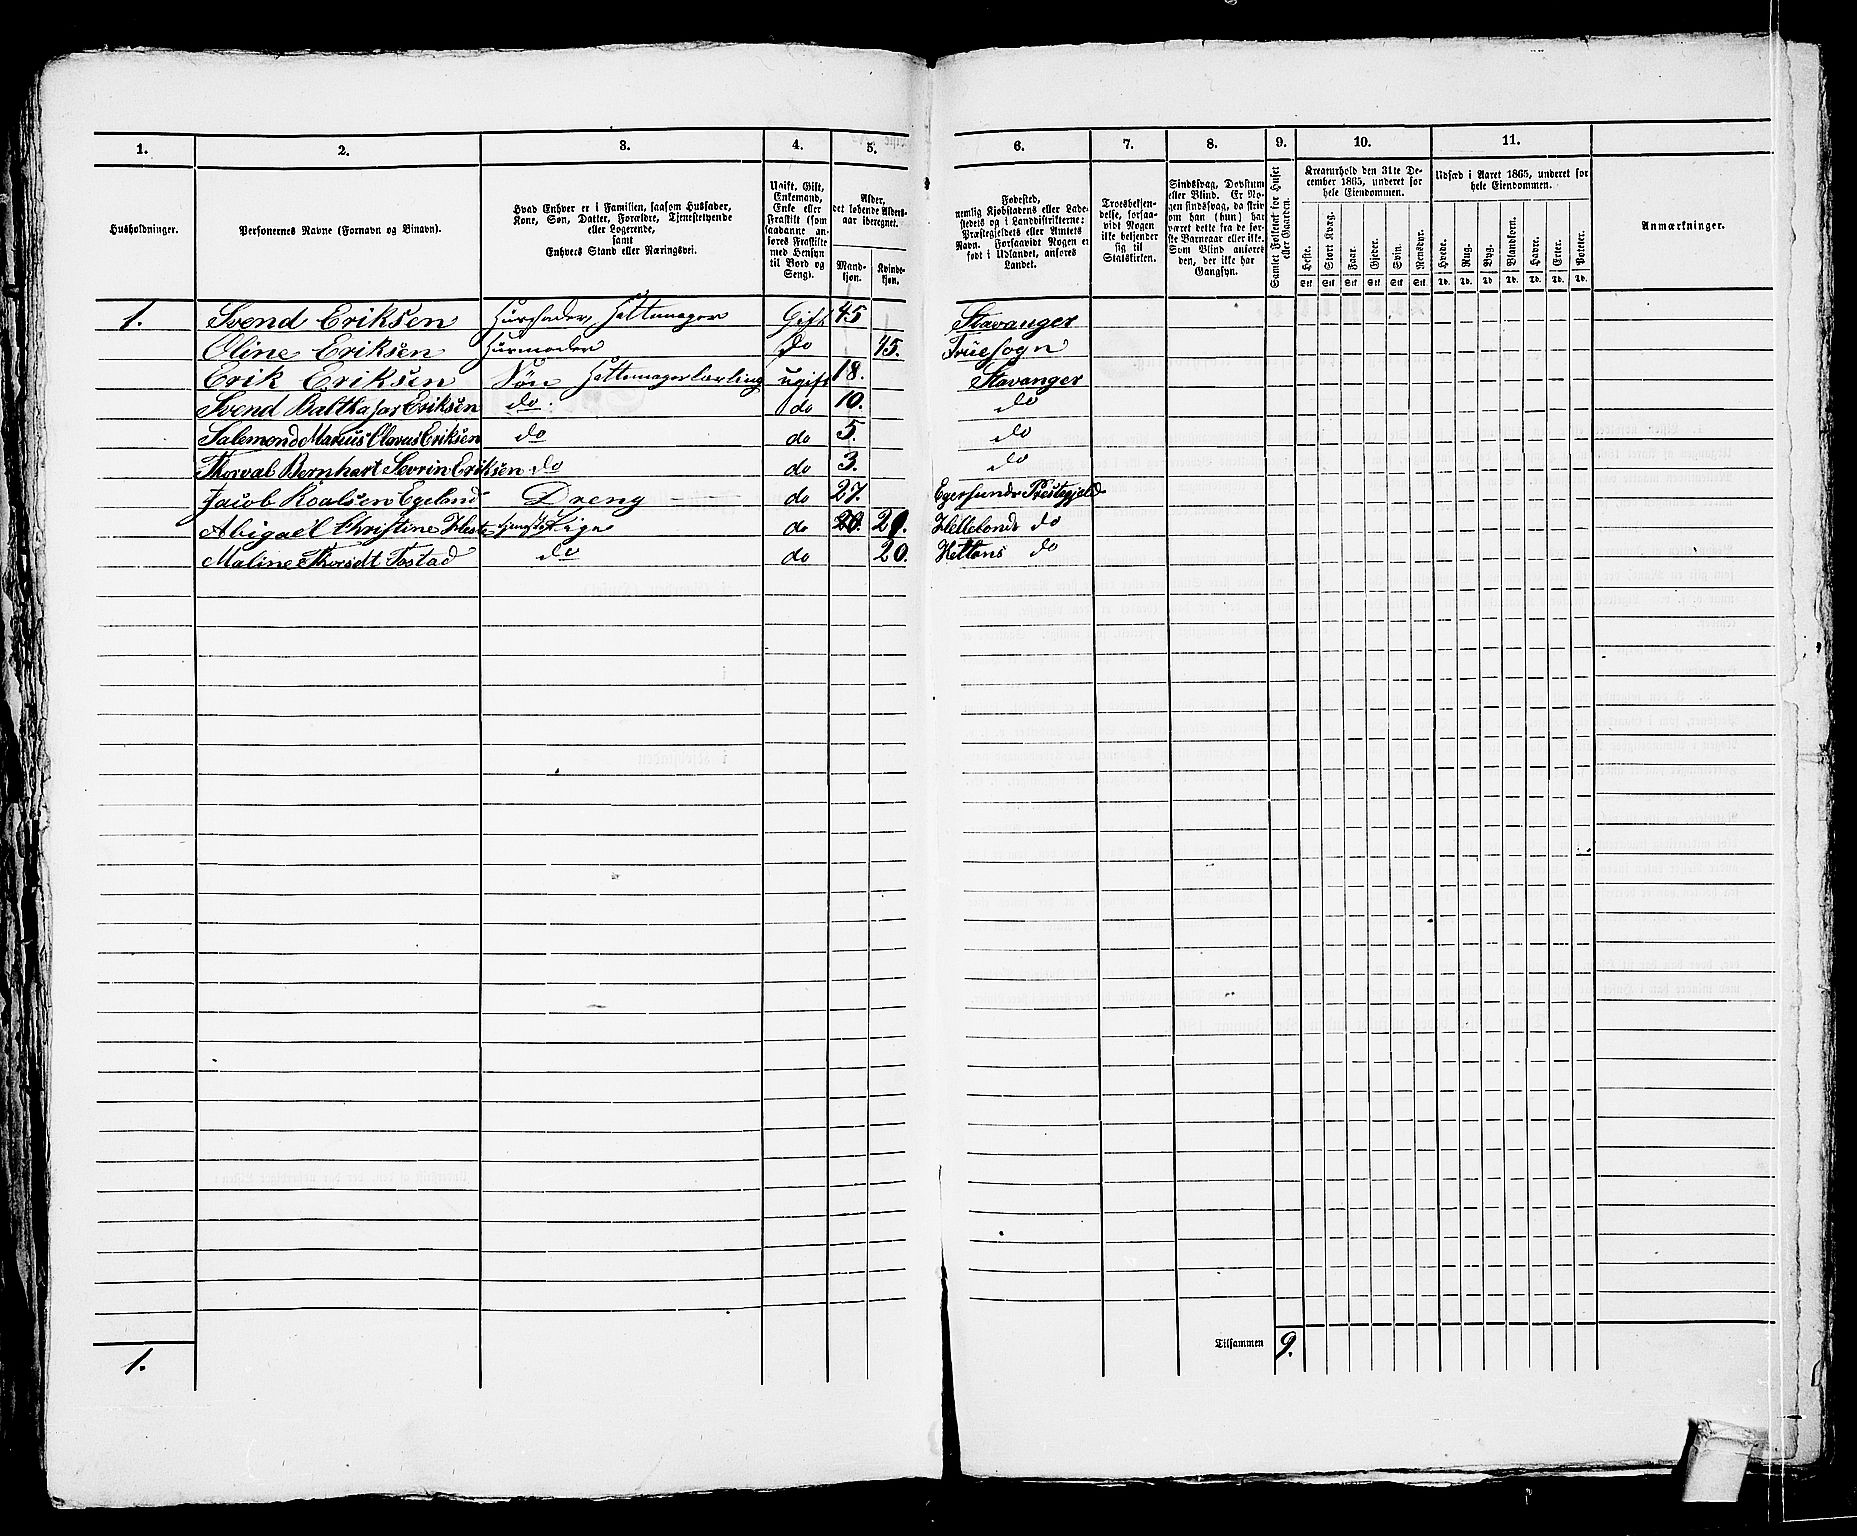 1. 2. 3. 4. 5. 6. 7. 8. 9. 10. 11.
Husholdninger.
Personernes Navne (Fornavn og Binavn).
Hvad Enhver er i Familien, saasom Husfader,
Kone, Søn, Datter, Forældre, Tjenestetyende
eller Logerende,
samt
Enhvers Stand eller Næringsvei.
Ugift, Gift,
Enkemand,
Enke eller
Fraskilt (som
saadanne an-
føres Fraskilte
med Hensyn
til Bord og
Seng).
Alder,
det løbende Alders-
aar iberegnet.
Mand-
kjøn.
Kvinde-
kjøn.
Fødested,
nemlig Kjøbstadens eller Lade-
stedets og i Landdistrikterne:
Præstegjeldets eller Amtets
Navn. Forsaavidt Nogen er
født i Udlandet, anføres
Landet.
Troesbekjen-
delse, forsaa-
vidt Nogen
ikke bekjender
sig til
Statskirken.
Sindssvag, Døvstum
eller Blind. Er No-
gen sindssvag, da skriv
om han (hun) har
været dette fra de før-
ste Barneaar eller ikke.
Som Blind anføres
den, der ikke har
Gangsyn.
Samlet Folketal for Huset
eller Gaarden.
Kreaturhold den 31te De-
cember 1865, underet for
hele Eiendommen.
Heste. Stort Kvæg. Faar. Gjeder. Svin. Rensdyr.
Stk Stk Stk Stk Stk Stk
Udsæd i Aaret 1865, underet for
hele Eiendommen.
Hvede. Rug. Byg. Blandkorn. Havre. Erter. Poteter.
Td. Td. Td Td. Td. Td. Td.
Anmærkninger.
1. Svend Eriksen Husfader, Hattemager Gift 45 Stavanger
Oline Eriksen Husmoder do 45. Frue Sogn
Erik Eriksen Søn Hattemagerlærling ugift 18. Stavanger
Svend Balthasar Eriksen do. do 10. do
Salemond Marius Olavus Eriksen do do 5. do
Thorval Bernhart Sevrin Eriksen do do 3. do
Jacob Roalsen Egeland Dreng do 27. Egersunds Prestegjeld
Abigael Christine do 20. Hellelands do
Maline Tostad do do 20. do
Tilsammen 9.
1.